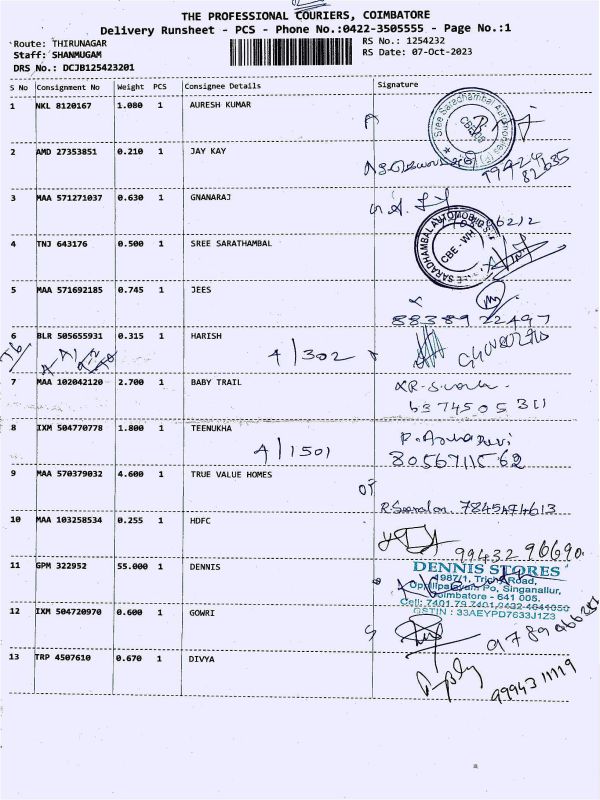 THE PROFESSIONAL COURIERS, COIMBATORE
Delivery Runsheet - PCS - Phone No.:0422-3505555 - Page No.:1
Route: THIRUNAGAR
RS No.: 1254232
Staff: SHANMUGAM
RS Date: 07-Oct-2023
DRS No.: DCJB125423201
S No Consignment No Weight PCS Consignee Details Signature
1 NKL 8120167 1.080 1 AURESH KUMAR
2 AMD 27353851 0.210 1 JAY KAY
3 MAA 571271037 0.630 1 GNANARAJ
4 TNJ 643176 0.500 1 SREE SARATHAMBAL
CBE - WH
5 MAA 571692185 0.745 1 JEES
88389 22497
6 BLR 505655931 0.315 1 HARISH
4/302
7 MAA 102042120 2.700 1 BABY TRAIL
63745 05 311
8 IXM 504770778 1.800 1 TEENUKHA
4/1501
8056711562
9 MAA 570379032 4.600 1 TRUE VALUE HOMES
7845474613
10 MAA 103258534 0.255 1 HDFC
99432 96690
11 GPM 322952 55.000 1 DENNIS
DENNIS STORES
1987/1, Trichy Road,
Oppilipalayam Po, Singanallur,
Coimbatore - 641 005.
GSTIN : 33AEYPD7633J1Z3
12 IXM 504720970 0.600 1 GOWRI
13 TRP 4507610 0.670 1 DIVYA
99943 11119